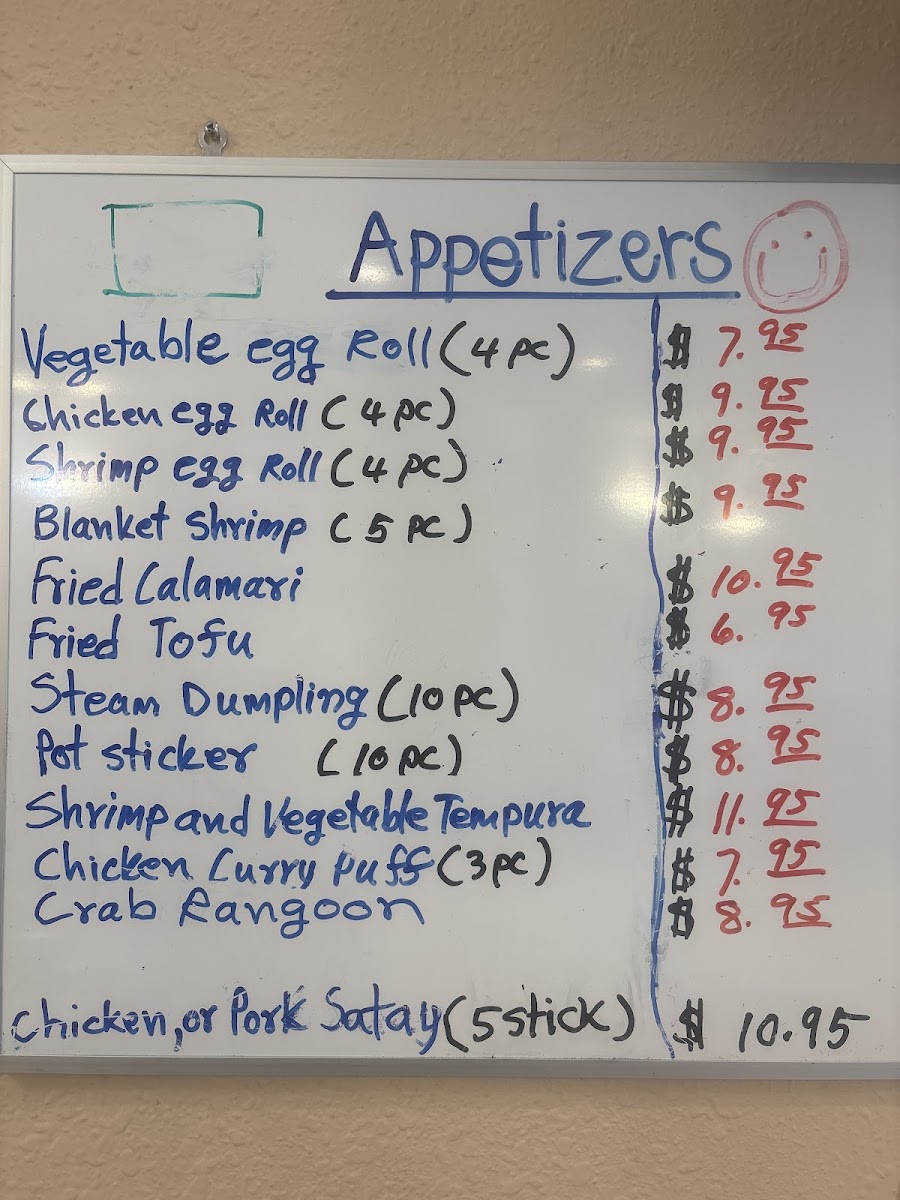 Appetizers
Vegetable egg Roll (4 pc) $ 7.95
Chicken egg Roll (4 pc) $ 9.95
Shrimp egg Roll (4 pc) $ 9.95
Blanket Shrimp (5 pc) $ 9.95
Fried Calamari $ 10.95
Fried Tofu $ 6.95
Steam Dumpling (10 pc) $ 8.95
Pot sticker (10 pc) $ 8.95
Shrimp and Vegetable Tempura $ 11.95
Chicken Curry Puff (3 pc) $ 7.95
Crab Rangoon $ 8.95
Chicken, or Pork Satay (5 stick) $ 10.95